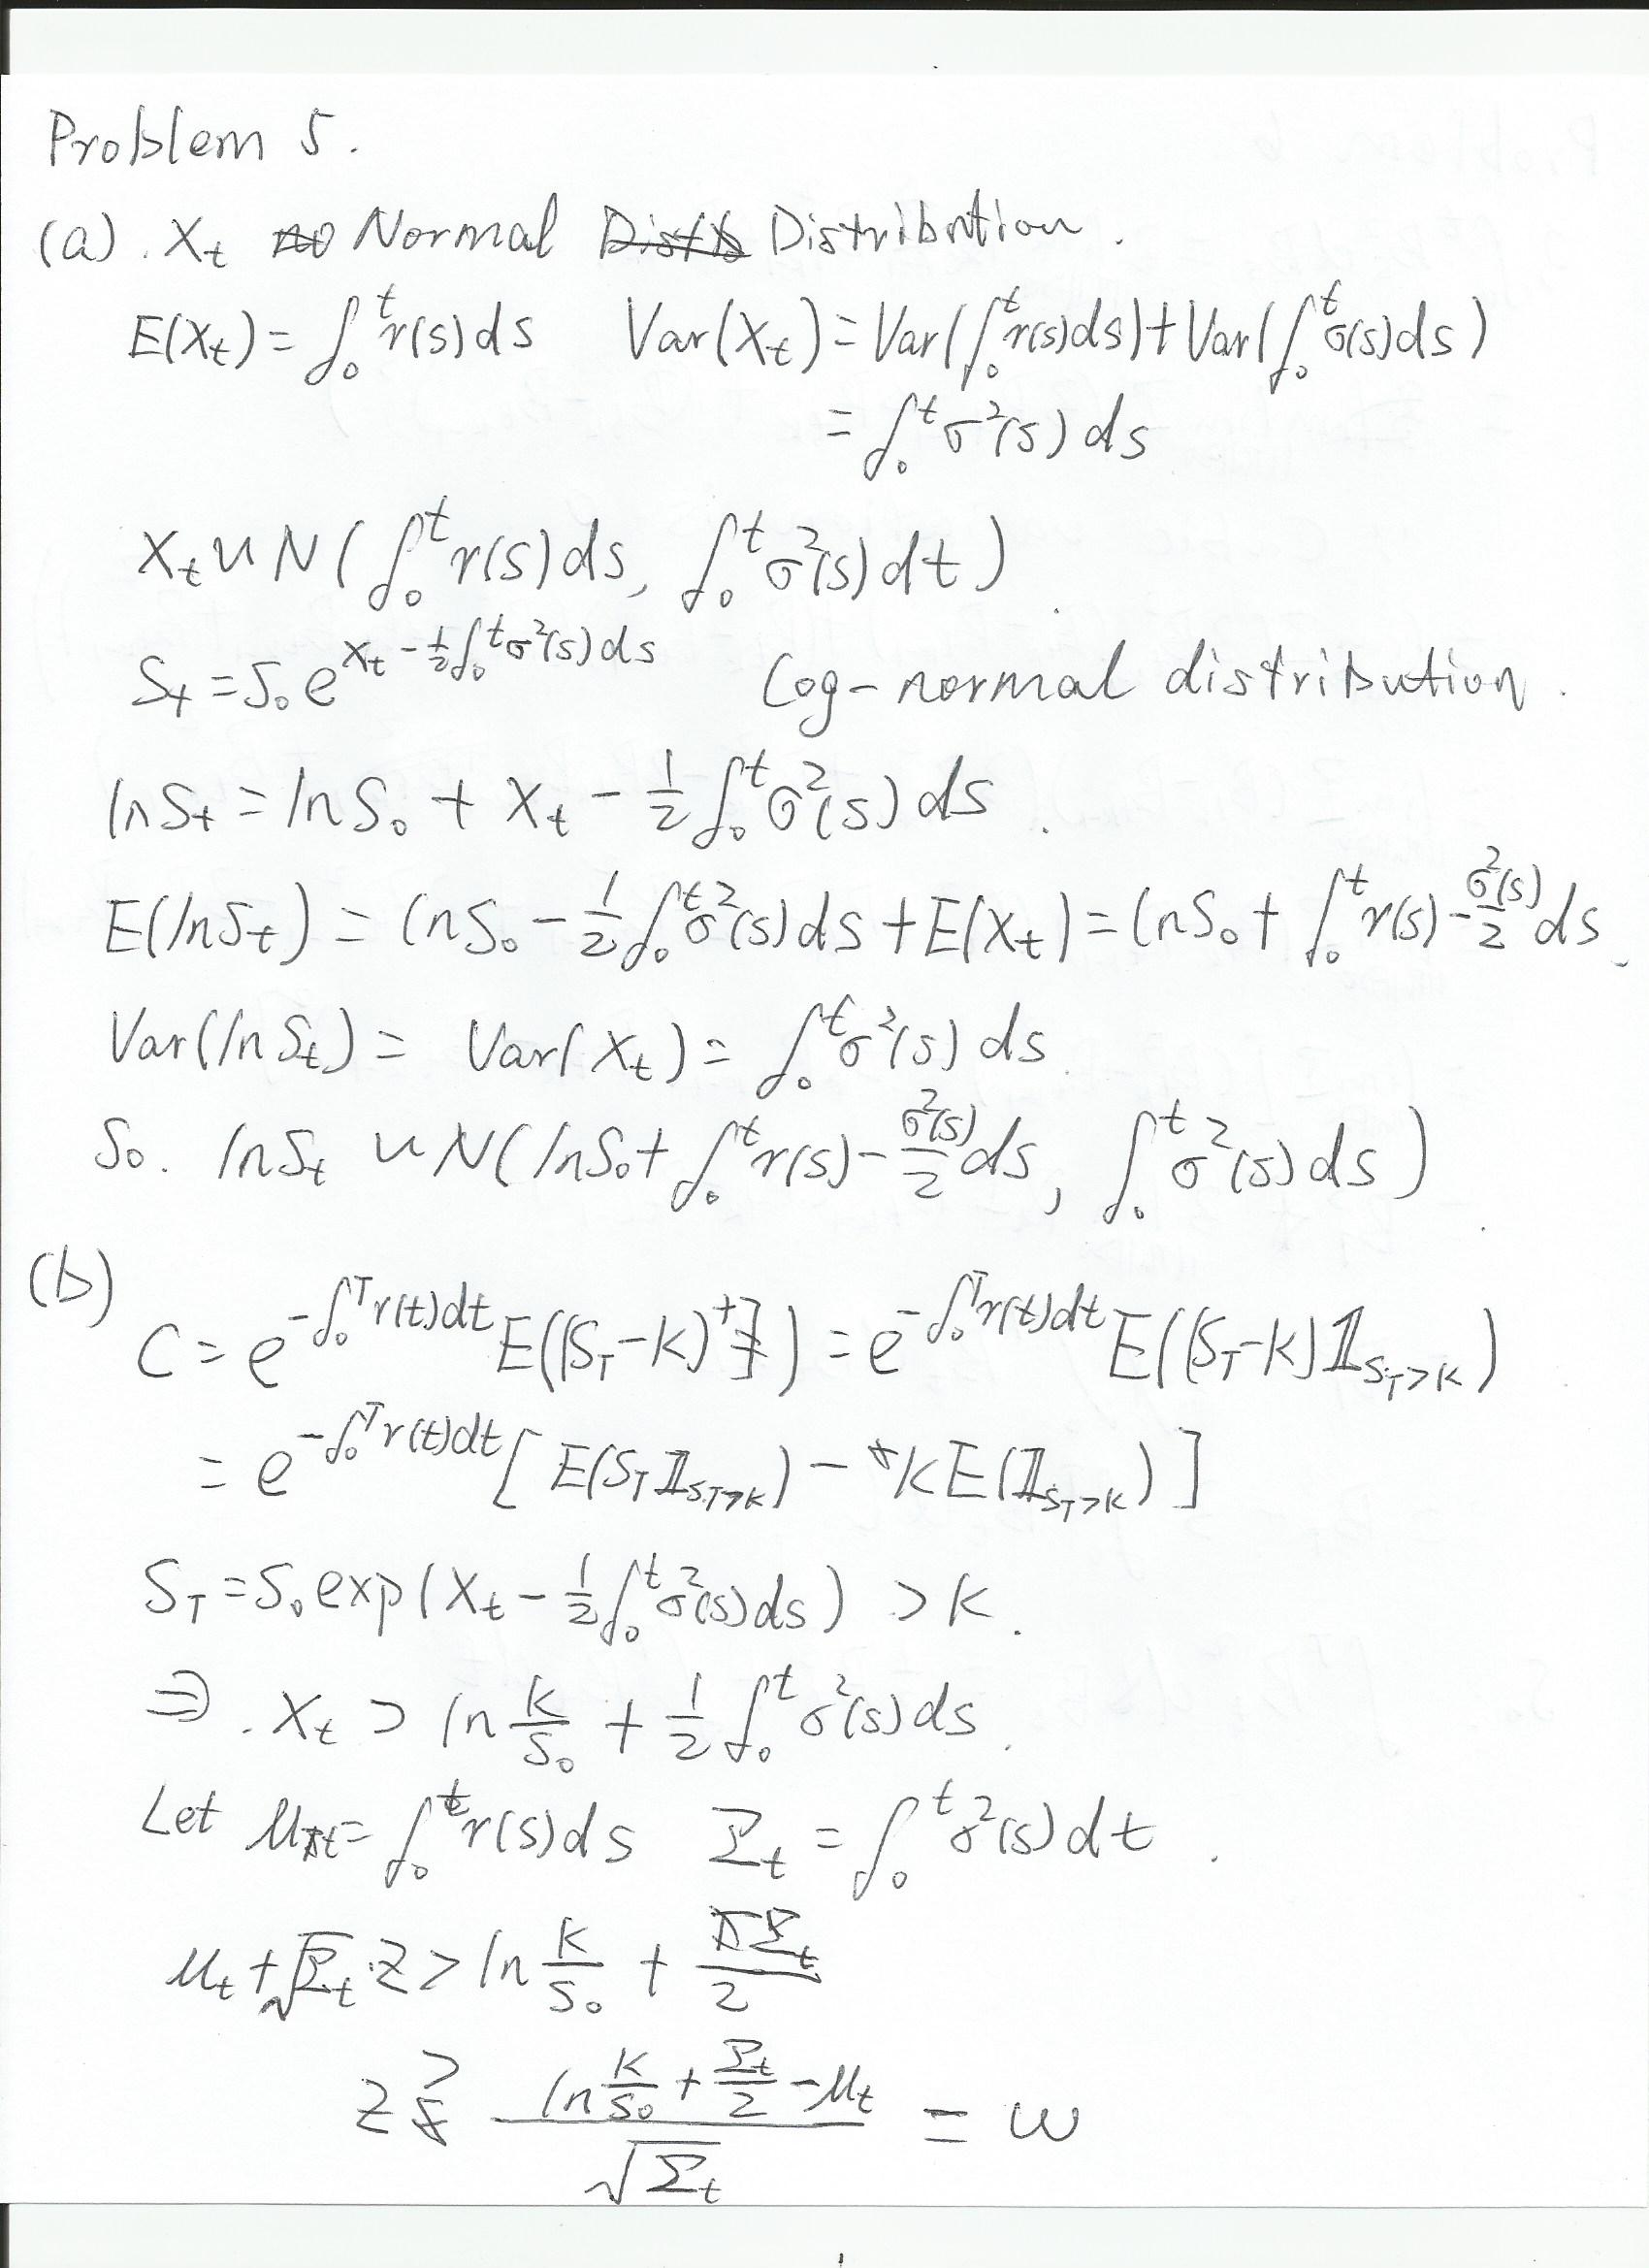 Problem 5.
(a). X_t ~~no~~ Normal ~~Distb~~ Distribution.
E(X_t) = ∫_0^t r(s)ds   Var(X_t) = Var(∫_0^t r(s)ds) + Var(∫_0^t σ(s)ds)
= ∫_0^t σ²(s) ds
X_t ~ N(∫_0^t r(s)ds, ∫_0^t σ²(s)dt)
S_t = S_0 e^{X_t - ½∫_0^t σ²(s)ds}   Log-normal distribution.
ln S_t = ln S_0 + X_t - ½∫_0^t σ²(s)ds.
E(ln S_t) = ln S_0 - ½∫_0^t σ²(s)ds + E(X_t) = ln S_0 + ∫_0^t r(s) - σ²(s)/2 ds.
Var(ln S_t) = Var(X_t) = ∫_0^t σ²(s) ds.
So. ln S_t ~ N(ln S_0 + ∫_0^t r(s) - σ²(s)/2 ds, ∫_0^t σ²(s)ds)
(b)
C = e^{-∫_0^T r(t)dt} E((S_T-K)^+) = e^{-∫_0^T r(t)dt} E((S_T-K)𝟙_{S_T>K})
= e^{-∫_0^T r(t)dt} [E(S_T 𝟙_{S_T>K}) - K E(𝟙_{S_T>K})]
S_T = S_0 exp(X_t - ½∫_0^t σ²(s)ds) > K.
⇒. X_t > ln K/S_0 + ½∫_0^t σ²(s)ds.
Let μ_t = ∫_0^t r(s)ds   Σ_t = ∫_0^t σ²(s)dt.
μ_t + √Σ_t · Z > ln K/S_0 + Σ_t/2
Z > (ln K/S_0 + Σ_t/2 - μ_t)/√Σ_t = ω